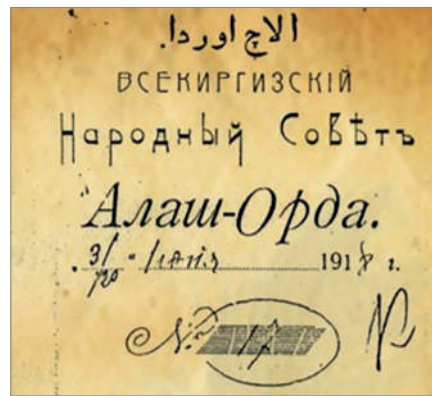 الاچ اوردا.
ВСЕКИРГИЗСКІЙ
Народный Совѣтъ
Алаш-Орда.
1918 г.
№ 17